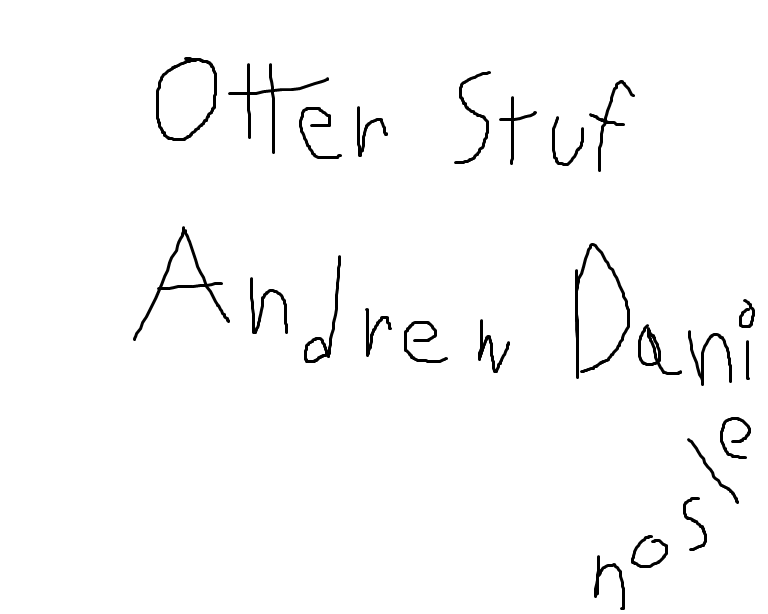 Otter Stuf
Andrew Danielson